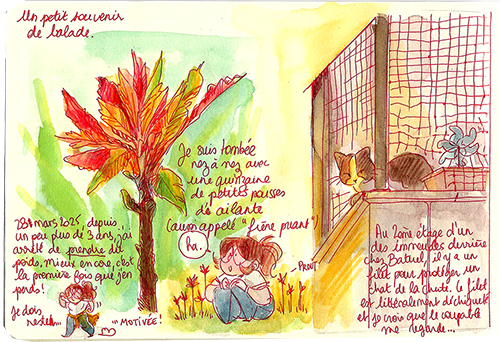 Un petit souvenir
de balade.
Je suis tombée
nez à nez avec
une quinzaine
de petites pousses
d'ailante
(aussi appelé "frêne puant")
Ha.
PROUT
28 mars 2025, depuis
un peu plus de 2 ans, j'ai
arrêté de prendre du
poids. Mieux encore, c'est
la première fois que j'en
perds!
Je dois
rester...
...MOTIVÉE!
Au 2ème étage d'un
des immeubles derrière
chez Batuel, il y a un
filet pour protéger un
chat de la chute. Le filet
est littéralement déchiqueté
et je crois que le coupable
me regarde...